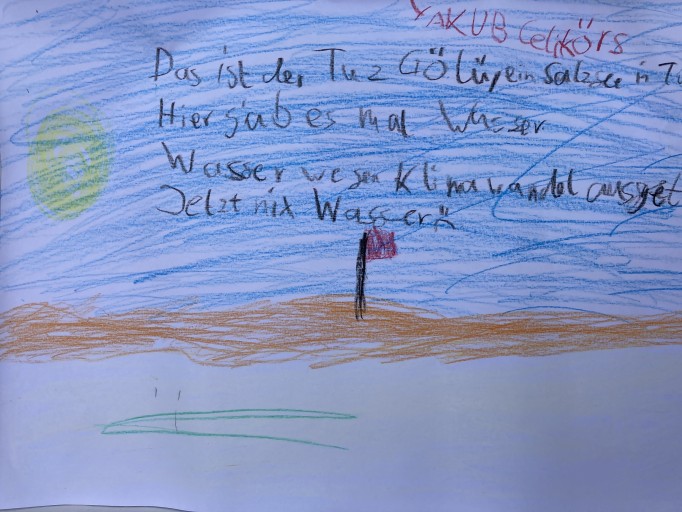 YAKUB Celikörs
Das ist der Tuz Gölü, ein Salzsee in Tu
Hier gab es mal Wasser
Wasser wegen Klimawandel ausget
Jetzt nix Wasser